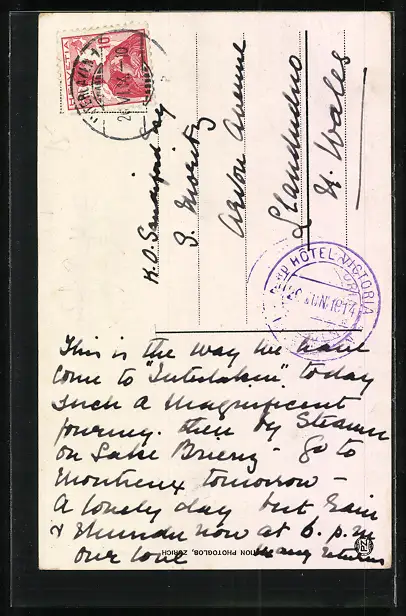 HELVETIA
10
INTERLAKEN
K. O. Sandford Esq
3. Moritz
Avron Avenue
Llandudno
N. Wales
HÔTEL VICTORIA
JUN. 1914
This is the way we have
come to "Interlaken" today
such a magnificent
journey. then by Steamer
on Lake Brienz - go to
Montreux tomorrow -
A lovely day but Rain
& Thunder now at 6. p.m
Our love many returns
PHOTOGLOB, ZÜRICH